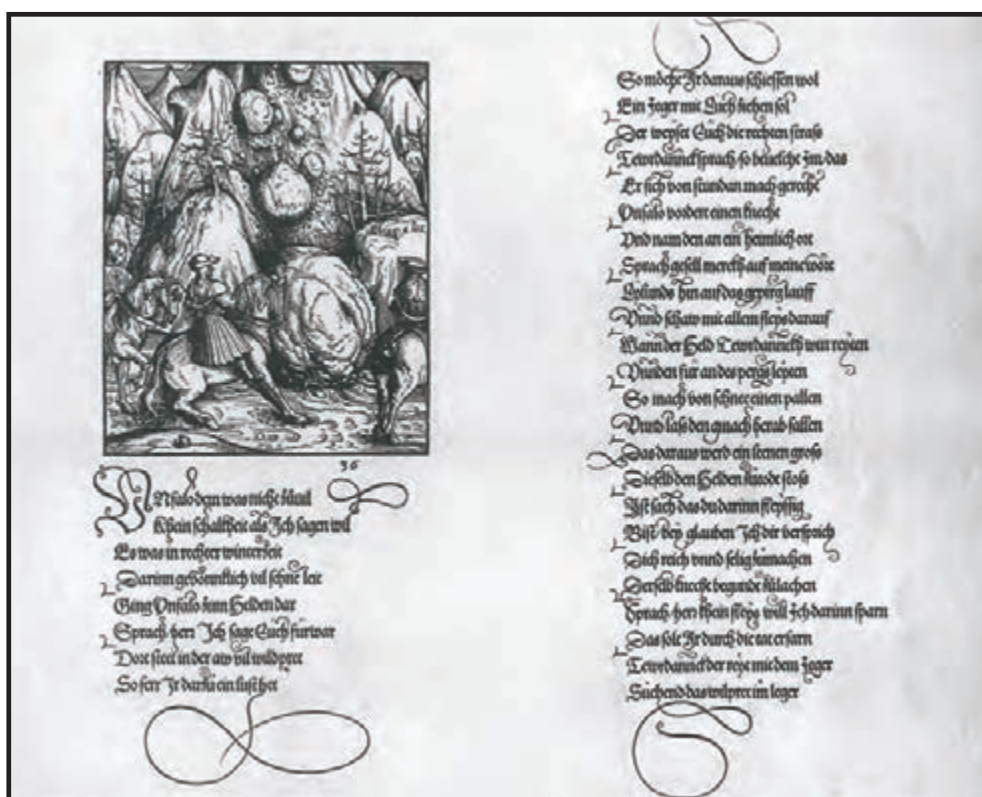 36
VNfalo dem was nicht zůuil
Khein schalkheit als Ich sagen wil
Es was in rechter winterzeit
Darinn gewönnklich vil schne leit
Ging Vnfalo zum Helden dar
Sprach herr Ich sage Euch fürwar
Dort steet in der aw vil wildpret
So ferr Ir darzů ein lust het
So möcht Ir daraus schiessen wol
Ein Jeger mit Euch ziehen sol
Der weyset Euch die rechten strass
Tewrdannck sprach so beuelcht Im das
Er sich von stundan mach gerecht
Vnfalo vordert einen knecht
Vnd nam den an ein heimlich ort
Sprach gesell merckh auf meine wort
hin auf das gepirg lauff
Vnnd schaw mit allem fleyss darauf
Wann der Held Tewrdannckh wirt reyten
Vnnden für an des pergs leyten
So mach von schne einen pallen
Vnnd lass den gmach herab fallen
Das daraus werd ein leenen gross
Dieselb den Helden zůtode stoss
Ist sach das du darinn fleyssig
Bist bey glauben Ich dir versprich
Dich reich vnnd selig zůmachen
Derselb knecht begunde zůlachen
Sprach herr khein fleyss will Ich darinn sparn
Das solt Ir durch die tat erfarn
Tewrdannck der reyt mit dem Jeger
Sůchend das wilpret im leger